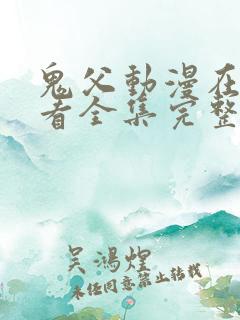 鬼父動漫在
看全集完整
吴鴻煌
未经同意禁止转载